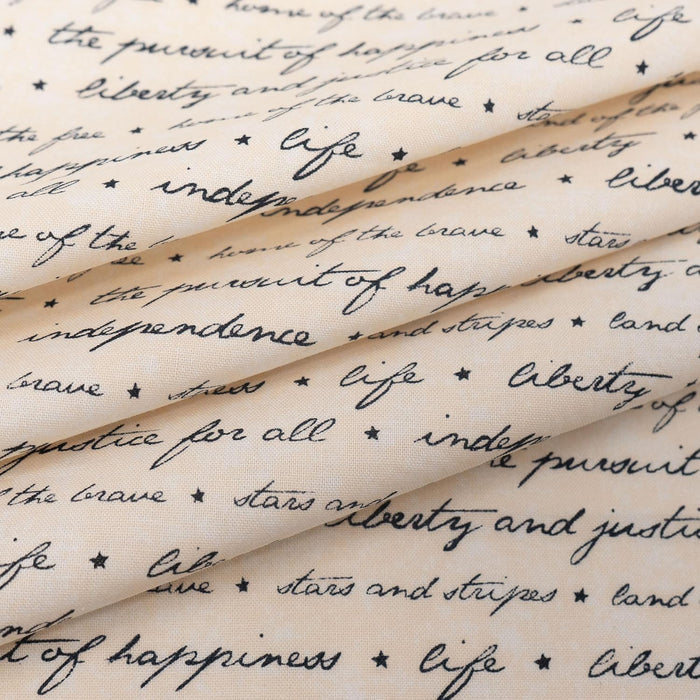 home of the brave ★ life
★ the pursuit of happiness ★ life
★ liberty and justice for all ★
the free ★ home of the brave ★ land of the
happiness ★ life ★ life ★ liberty ★
all ★ independence ★ liberty
of the ★ home of the brave ★ stars
★ the pursuit of liberty
independence ★ and stripes ★ land
brave ★ life ★ liberty of
justice for all ★ pursuit
the brave ★ stars liberty and justice
life ★ ★ stars and stripes ★ land
of happiness ★ life ★ liberty